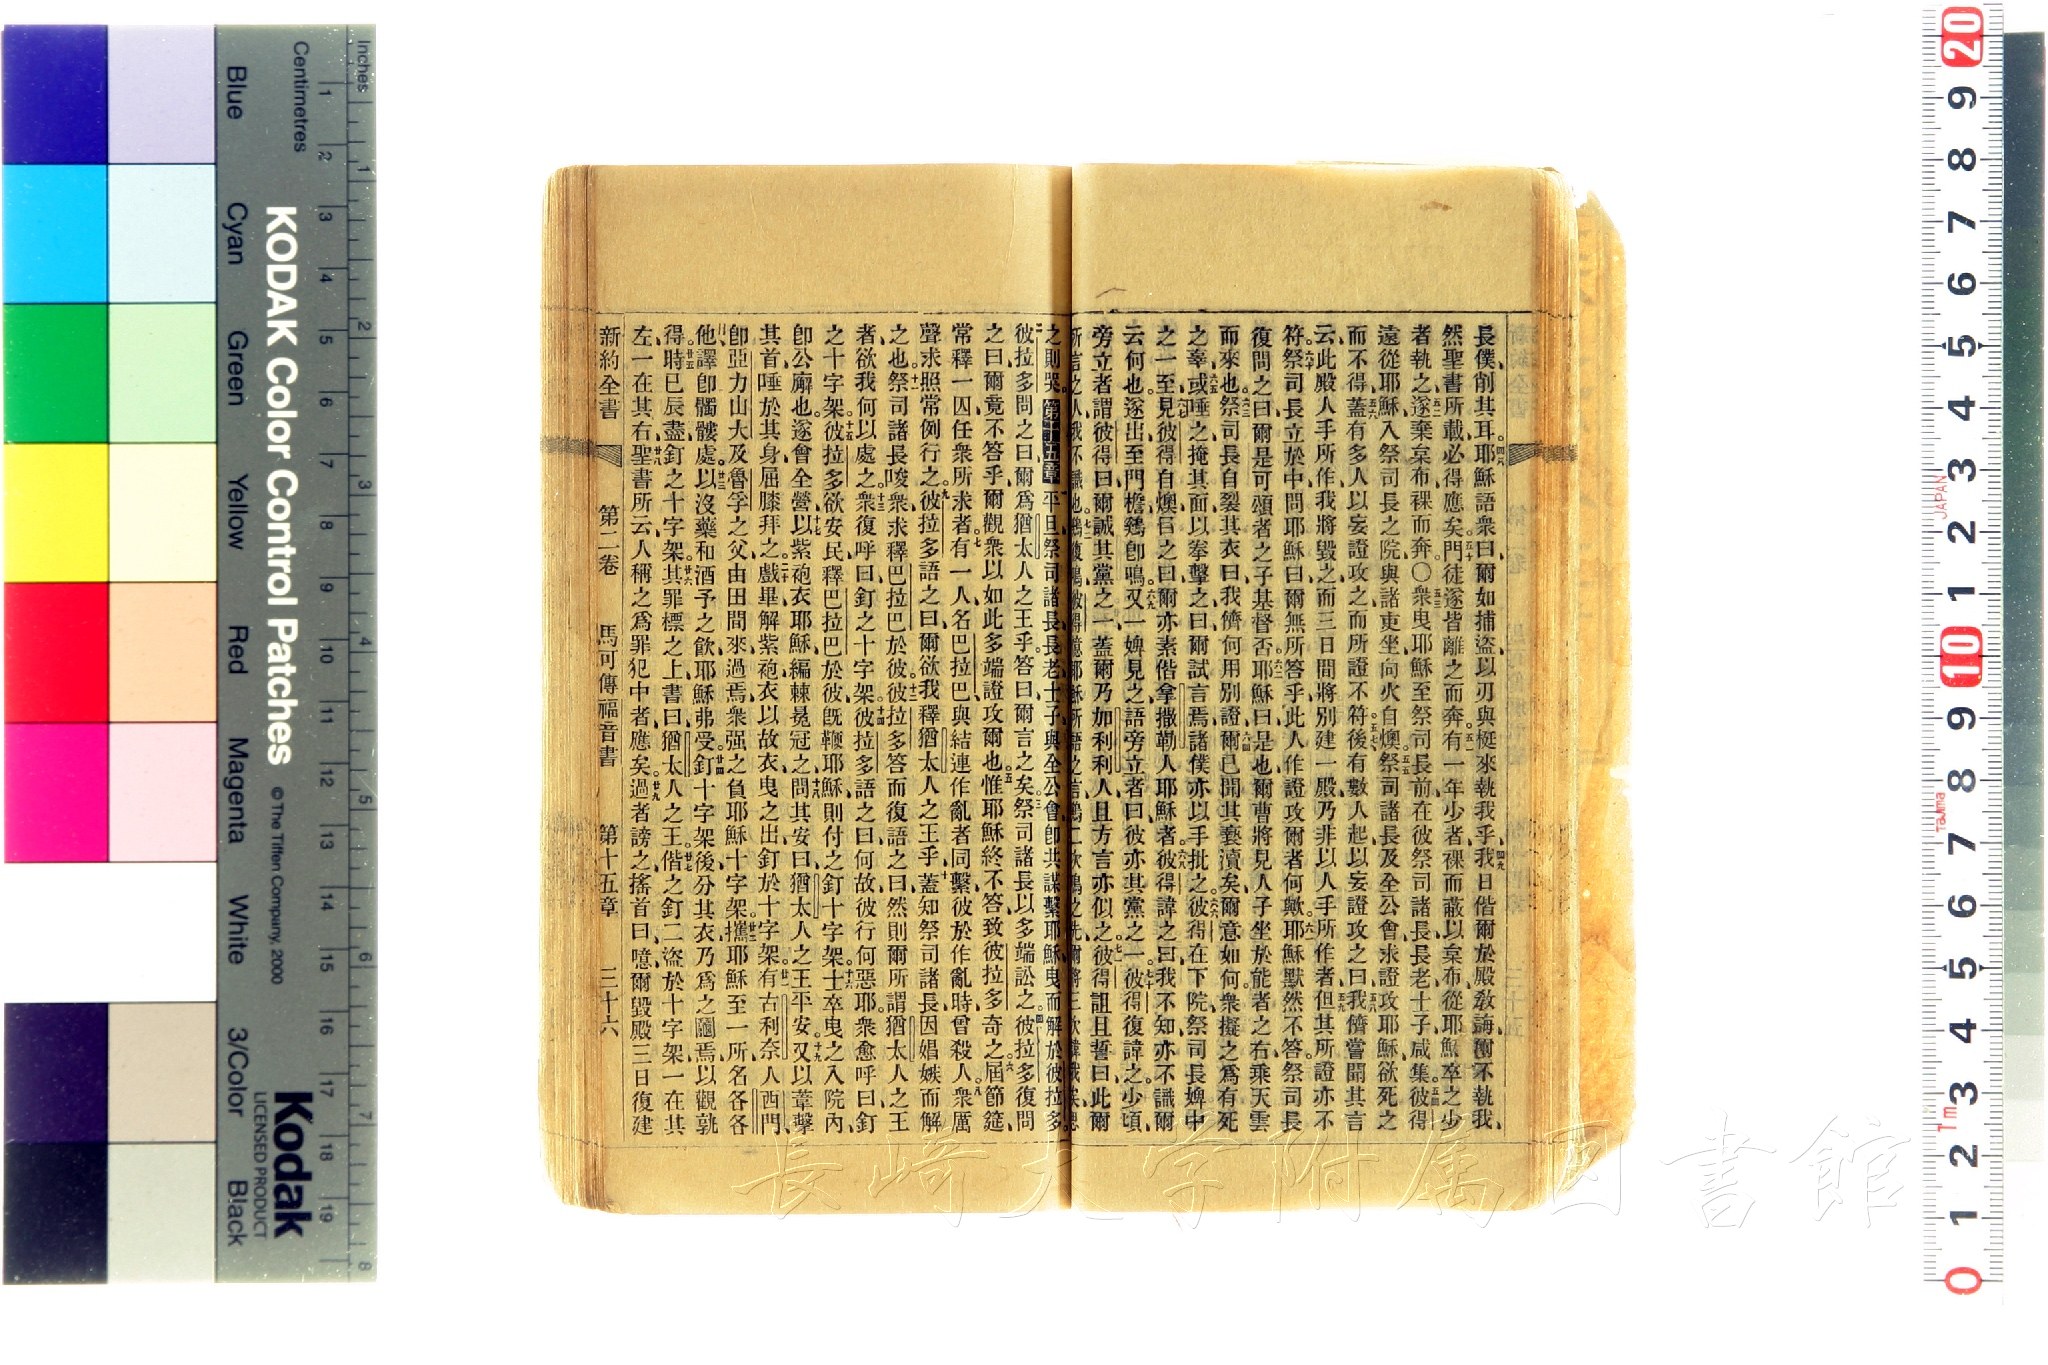 長僕削其耳耶穌語衆曰爾如捕盜以刃與梃來執我乎我日偕爾於殿敎誨爾不執我
然聖書所載必得應矣門徒遂皆離之而奔有一年少者裸而蔽以枲布從耶穌卒之少
者執之遂棄枲布裸而奔○衆曳耶穌至祭司長前在彼祭司諸長長老士子咸集彼得
遠從耶穌入祭司長之院與諸吏坐向火自燠祭司諸長及全公會求證攻耶穌欲死之
而不得蓋有多人以妄證攻之而所證不符後有數人起以妄證攻之曰我儕嘗聞其言
云此殿人手所作我將毀之而三日間將別建一殿乃非以人手所作者但其所證亦不
符祭司長立於中問耶穌曰爾無所答乎此人作證攻爾者何歟耶穌默然不答祭司長
復問之曰爾是可頌者之子基督否耶穌曰是也爾曹將見人子坐於能者之右乘天雲
而來也祭司長自裂其衣曰我儕何用別證爾已聞其褻瀆矣爾意如何衆擬之爲有死
之辜或唾之掩其面以拳擊之曰爾試言焉諸僕亦以手批之彼得在下院祭司長婢中
之一至見彼得自燠目之曰爾亦素偕拿撒勒人耶穌者彼得諱之曰我不知亦不識爾
云何也遂出至門檐鷄卽鳴又一婢見之語旁立者曰彼亦其黨之一彼得復諱之少頃
旁立者謂彼得曰爾誠其黨之一蓋爾乃加利利人且方言亦似之彼得詛且誓曰此爾
所言之人我不識也鷄復鳴彼得憶耶穌所語之言鷄二次鳴之先爾將三次諱我矣思
之則哭 第十五章 平旦祭司諸長長老士子與全公會卽共謀繫耶穌曳而解於彼拉多
彼拉多問之曰爾爲猶太人之王乎答曰爾言之矣祭司諸長以多端訟之彼拉多復問
之曰爾竟不答乎爾觀衆以如此多端證攻爾也惟耶穌終不答致彼拉多奇之屆節筵
常釋一囚任衆所求者有一人名巴拉巴與結連作亂者同繫彼於作亂時曾殺人衆厲
聲求照常例行之彼拉多語之曰爾欲我釋猶太人之王乎蓋知祭司諸長因娼嫉而解
之也祭司諸長唆衆求釋巴拉巴於彼彼拉多答而復語之曰然則爾所謂猶太人之王
者欲我何以處之衆復呼曰釘之十字架彼拉多語之曰何故彼行何惡耶衆愈呼曰釘
之十字架彼拉多欲安民釋巴拉巴於彼旣鞭耶穌則付之釘十字架士卒曳之入院內
卽公廨也遂會全營以紫袍衣耶穌編棘冕冠之問其安曰猶太人之王平安又以葦擊
其首唾於其身屈膝拜之戲畢解紫袍衣以故衣曳之出釘於十字架有古利奈人西門
卽亞力山大及魯孚之父由田間來過焉衆强之負耶穌十字架攜耶穌至一所名各各
他譯卽髑髏處以沒藥和酒予之飲耶穌弗受釘十字架後分其衣乃爲之鬮焉以觀孰
得時已辰盡釘之十字架其罪標之上書曰猶太人之王偕之釘二盜於十字架一在其
左一在其右聖書所云人稱之爲罪犯中者應矣過者謗之搖首曰噫爾毀殿三日復建
新約全書 第二卷 馬可傳福音書 第十五章 三十六
KODAK Color Control Patches
© The Tiffen Company, 2000
Kodak
LICENSED PRODUCT
Inches
Centimetres
Blue
Cyan
Green
Yellow
Red
Magenta
White
3/Color
Black
JAPAN
Tajima
長崎大学附属図書館